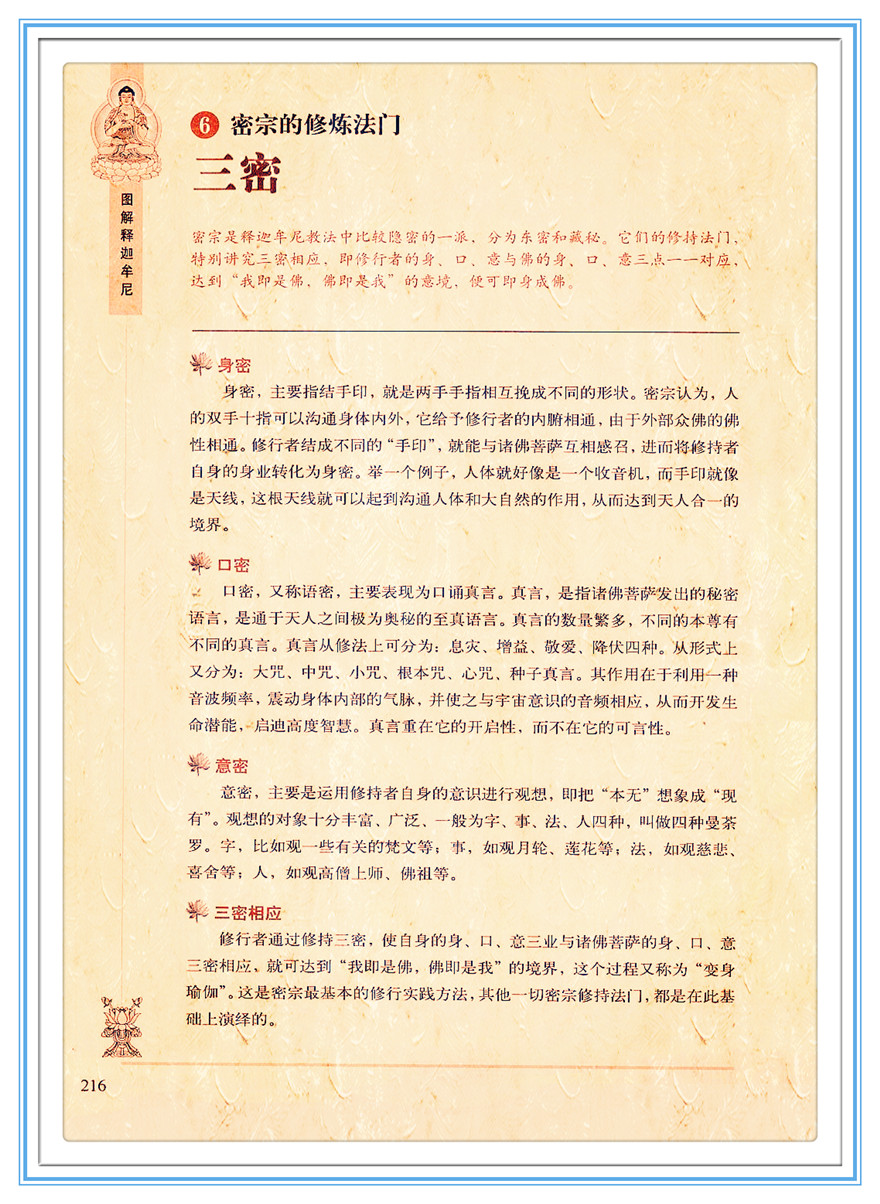 图解释迦牟尼
6 密宗的修炼法门
三密
密宗是释迦牟尼教法中比较隐密的一派，分为东密和藏秘。它们的修持法门，
特别讲究三密相应，即修行者的身、口、意与佛的身、口、意三点一一对应，
达到“我即是佛、佛即是我”的意境，便可即身成佛。
身密
身密，主要指结手印，就是两手手指相互挽成不同的形状。密宗认为，人
的双手十指可以沟通身体内外，它给予修行者的内腑相通，由于外部众佛的佛
性相通。修行者结成不同的“手印”，就能与诸佛菩萨互相感召，进而将修持者
自身的身业转化为身密。举一个例子，人体就好像是一个收音机，而手印就像
是天线，这根天线就可以起到沟通人体和大自然的作用，从而达到天人合一的
境界。
口密
口密，又称语密，主要表现为口诵真言。真言，是指诸佛菩萨发出的秘密
语言，是通于天人之间极为奥秘的至真语言。真言的数量繁多，不同的本尊有
不同的真言。真言从修法上可分为：息灾、增益、敬爱、降伏四种。从形式上
又分为：大咒、中咒、小咒、根本咒、心咒、种子真言。其作用在于利用一种
音波频率，震动身体内部的气脉，并使之与宇宙意识的音频相应，从而开发生
命潜能，启迪高度智慧。真言重在它的开启性，而不在它的可言性。
意密
意密，主要是运用修持者自身的意识进行观想，即把“本无”想象成“现
有”。观想的对象十分丰富、广泛、一般为字、事、法、人四种，叫做四种曼荼
罗。字，比如观一些有关的梵文等；事，如观月轮、莲花等；法，如观慈悲、
喜舍等；人，如观高僧上师、佛祖等。
三密相应
修行者通过修持三密，使自身的身、口、意三业与诸佛菩萨的身、口、意
三密相应、就可达到“我即是佛，佛即是我”的境界，这个过程又称为“变身
瑜伽”。这是密宗最基本的修行实践方法，其他一切密宗修持法门，都是在此基
础上演绎的。
216